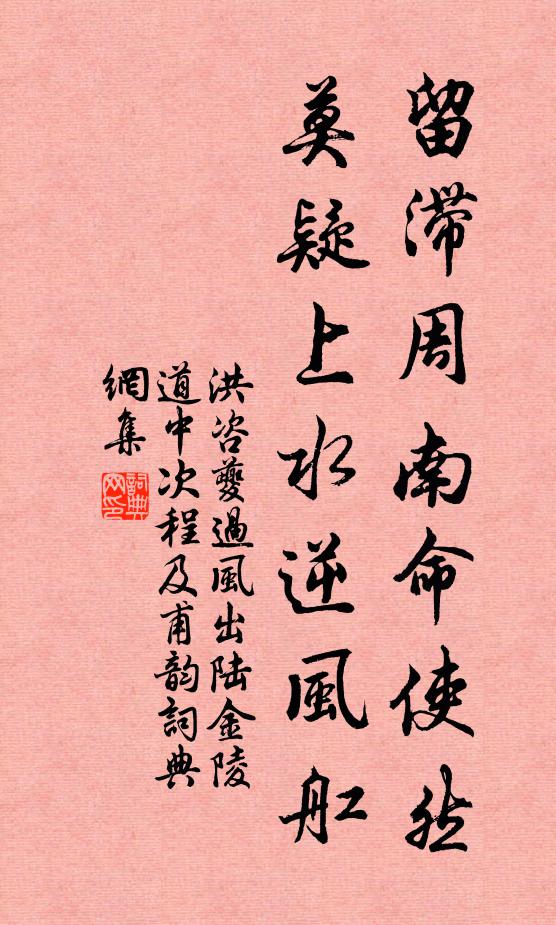 留滯周南命使然
莫疑上水逆風舡
洪咨夔過風出陆金陵
道中次程及甫韵詞典
網集
詞典网印